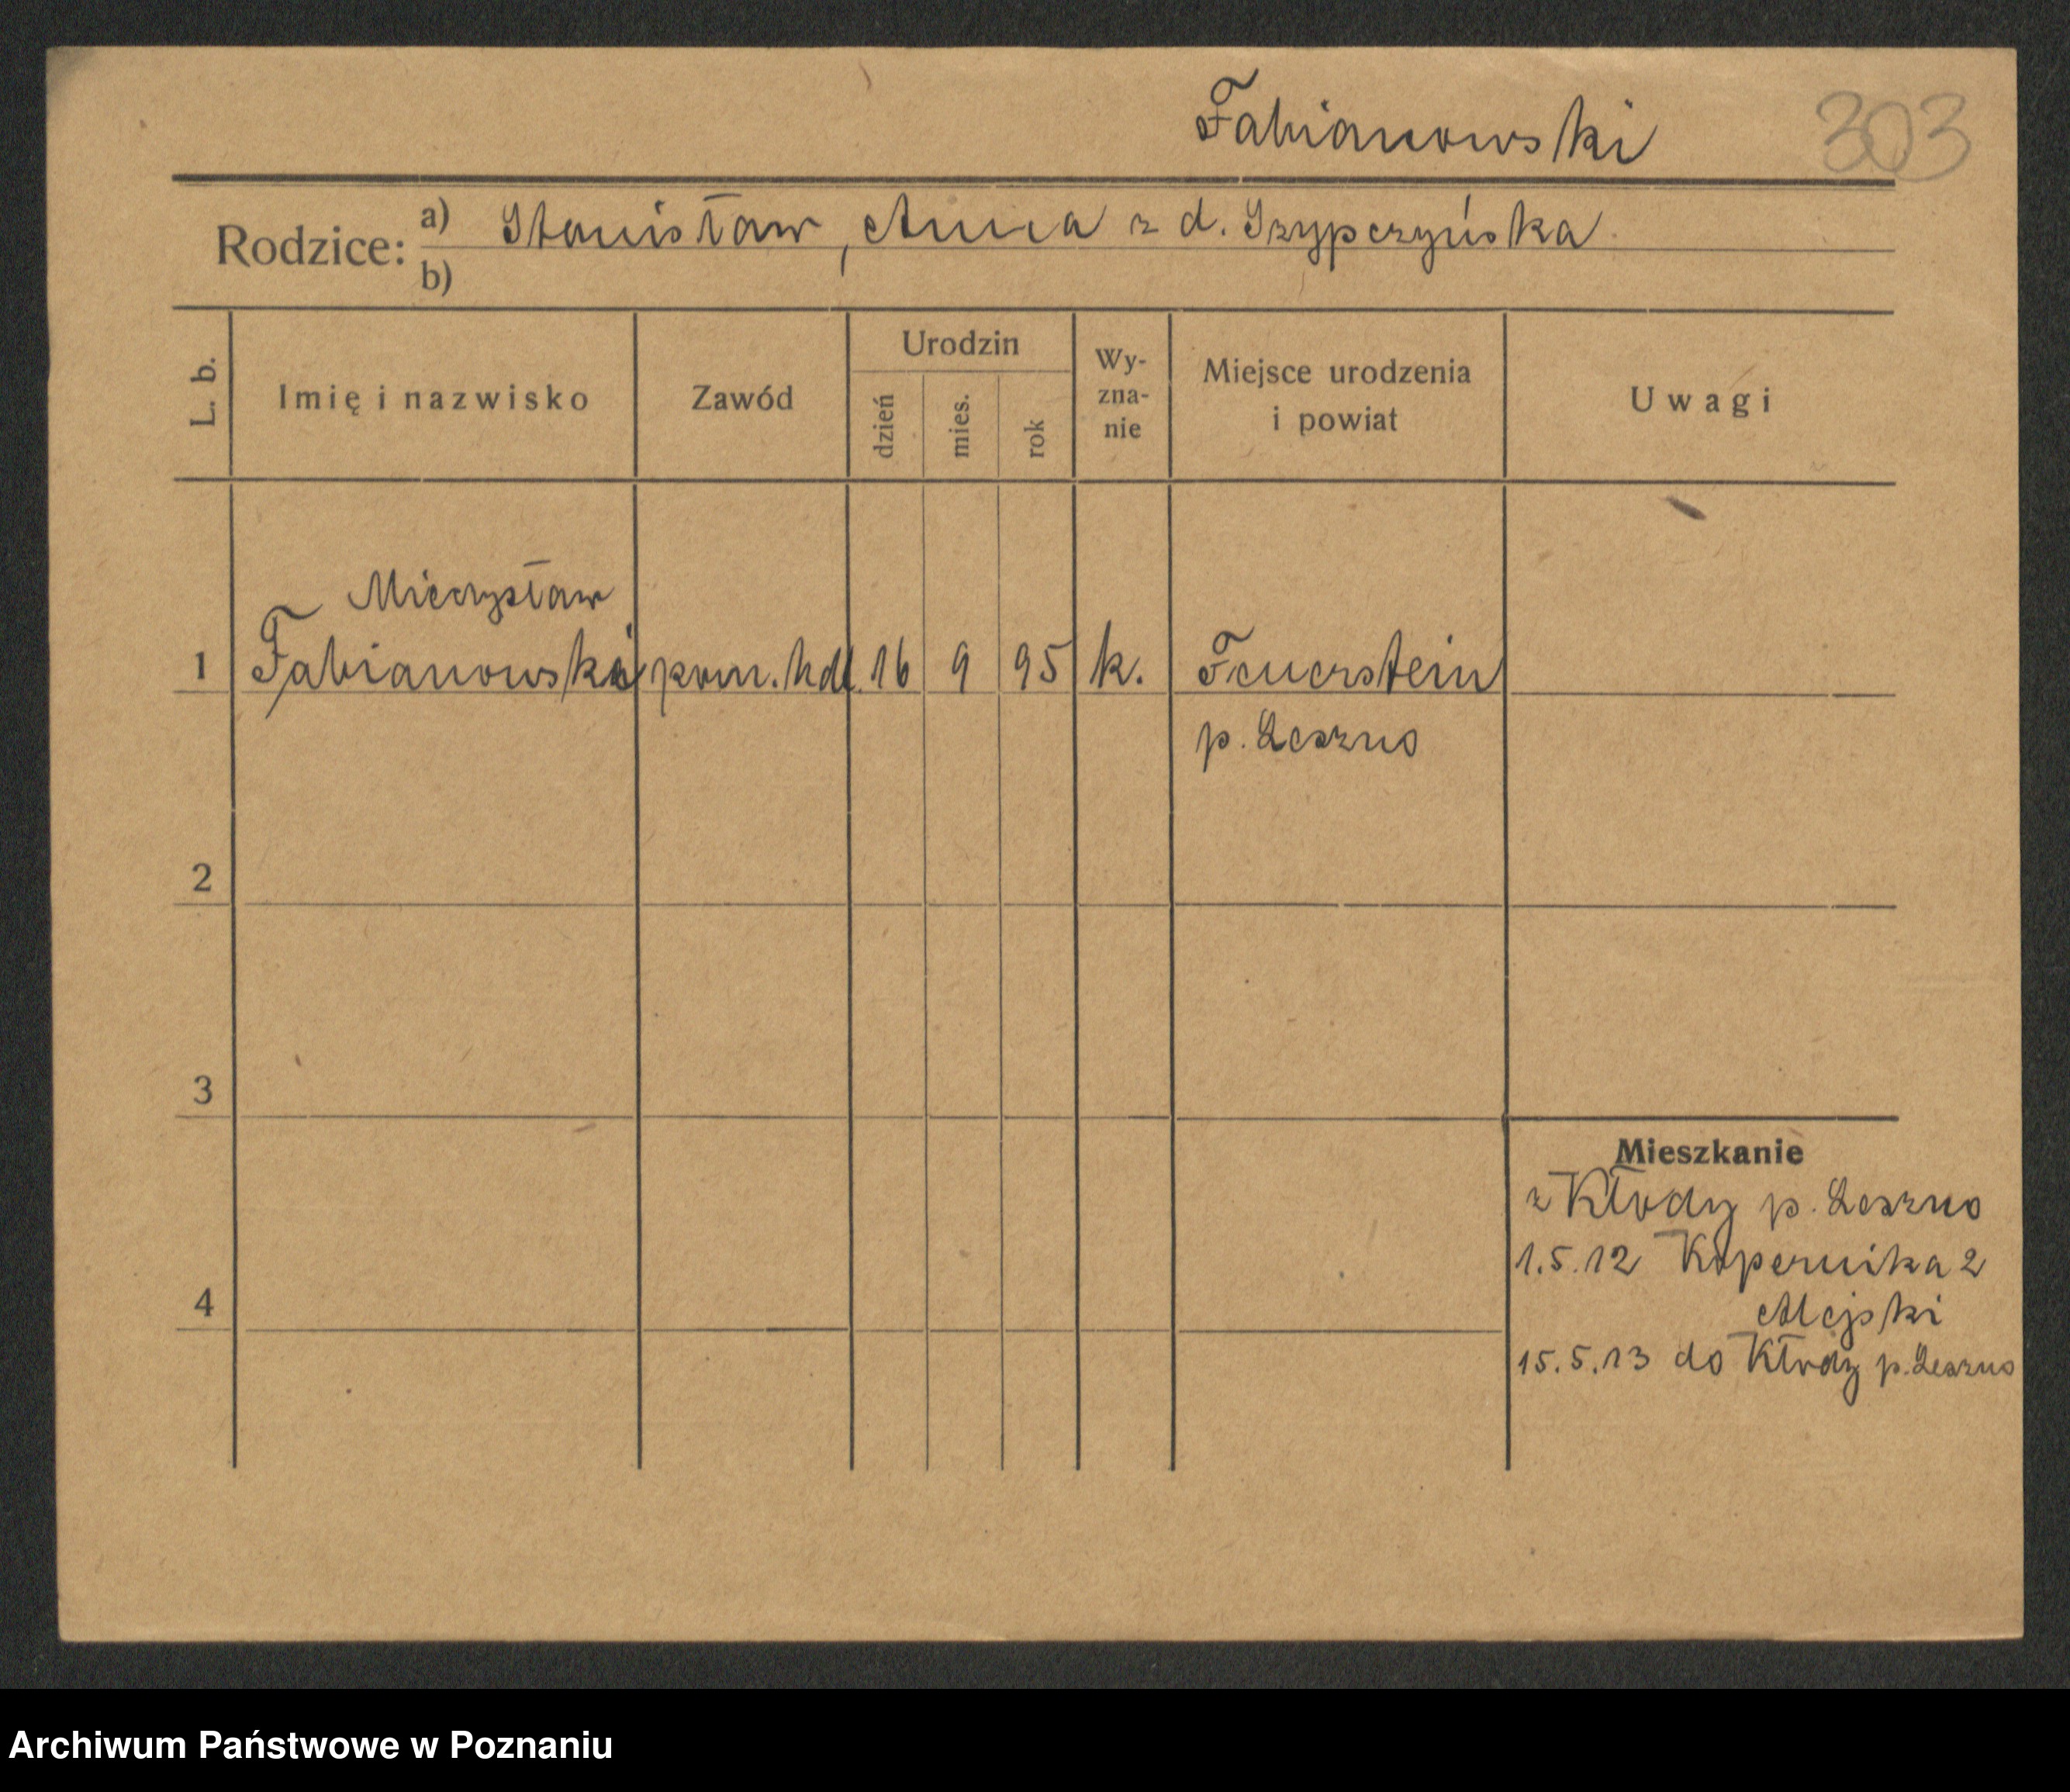 Fabianowski 303
Rodzice: a) Stanisław, Anna z d. Szypczyńska
b)
L. b. Imię i nazwisko Zawód Urodzin dzień mies. rok Wy-zna-nie Miejsce urodzenia i powiat Uwagi
Mieczysław
1 Fabianowski pom. hdl. 16 9 95 k. Feuerstein
p. Leszno
2
3
Mieszkanie
z Kłody p. Leszno
1.5.12 Kopernika 2
Alejski
4
15.5.13 do Kłody p. Leszno
Archiwum Państwowe w Poznaniu